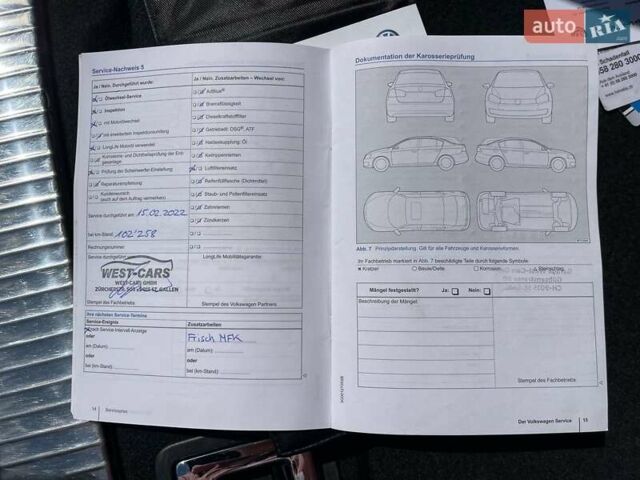 auto RIA
.com
Schadenfall
58 280 3000
Service-Nachweis 5
Ja / Nein. Durchgeführt wurde:
Ölwechsel-Service
Inspektion
mit Motorölwechsel
mit erweitertem Inspektionsumfang
LongLife Motoröl verwendet
Korrosions- und Dichtheitsprüfung der Erdgasanlage
Prüfung der Scheinwerfer-Einstellung
Reparaturempfehlung
Kundenwunsch
(auch auf dem Auftrag vermerken)
Service durchgeführt am: 15.02.2022
bei km-Stand: 102'258
Rechnungsnummer:
WEST-CARS
WEST-CARS GMBH
ST. GALLEN
Stempel des Fachbetriebs
Ja / Nein. Zusatzarbeiten – Wechsel von:
AdBlue®
Bremsflüssigkeit
Dieselkraftstofffilter
Getriebeöl: DSG®, ATF
Haldexkupplung: Öl
Keilrippenriemen
Luftfiltereinsatz
Reifenfüllflasche (Dichtmittel)
Staub- und Pollenfiltereinsatz
Zahnriemen
Zündkerzen
LongLife Mobilitätsgarantie:
Stempel des Volkswagen Partners
Ihre nächsten Service-Termine
Service-Ereignis
Zusatzarbeiten
nach Service-Intervall-Anzeige
oder
am (Datum):
oder
bei (km-Stand):
Frisch MFK
am (Datum):
oder
bei (km-Stand):
14 Serviceplan
Dokumentation der Karosserieprüfung
Abb. 7 Prinzipdarstellung. Gilt für alle Fahrzeuge und Karosserieformen.
Ihr Fachbetrieb markiert in Abb. 7 beschädigte Teile durch folgende Symbole:
Kratzer Beule/Delle Korrosion Steinschlag
Mängel festgestellt? Ja: Nein:
Beschreibung der Mängel:
Stempel des Fachbetriebs
Der Volkswagen Service 15